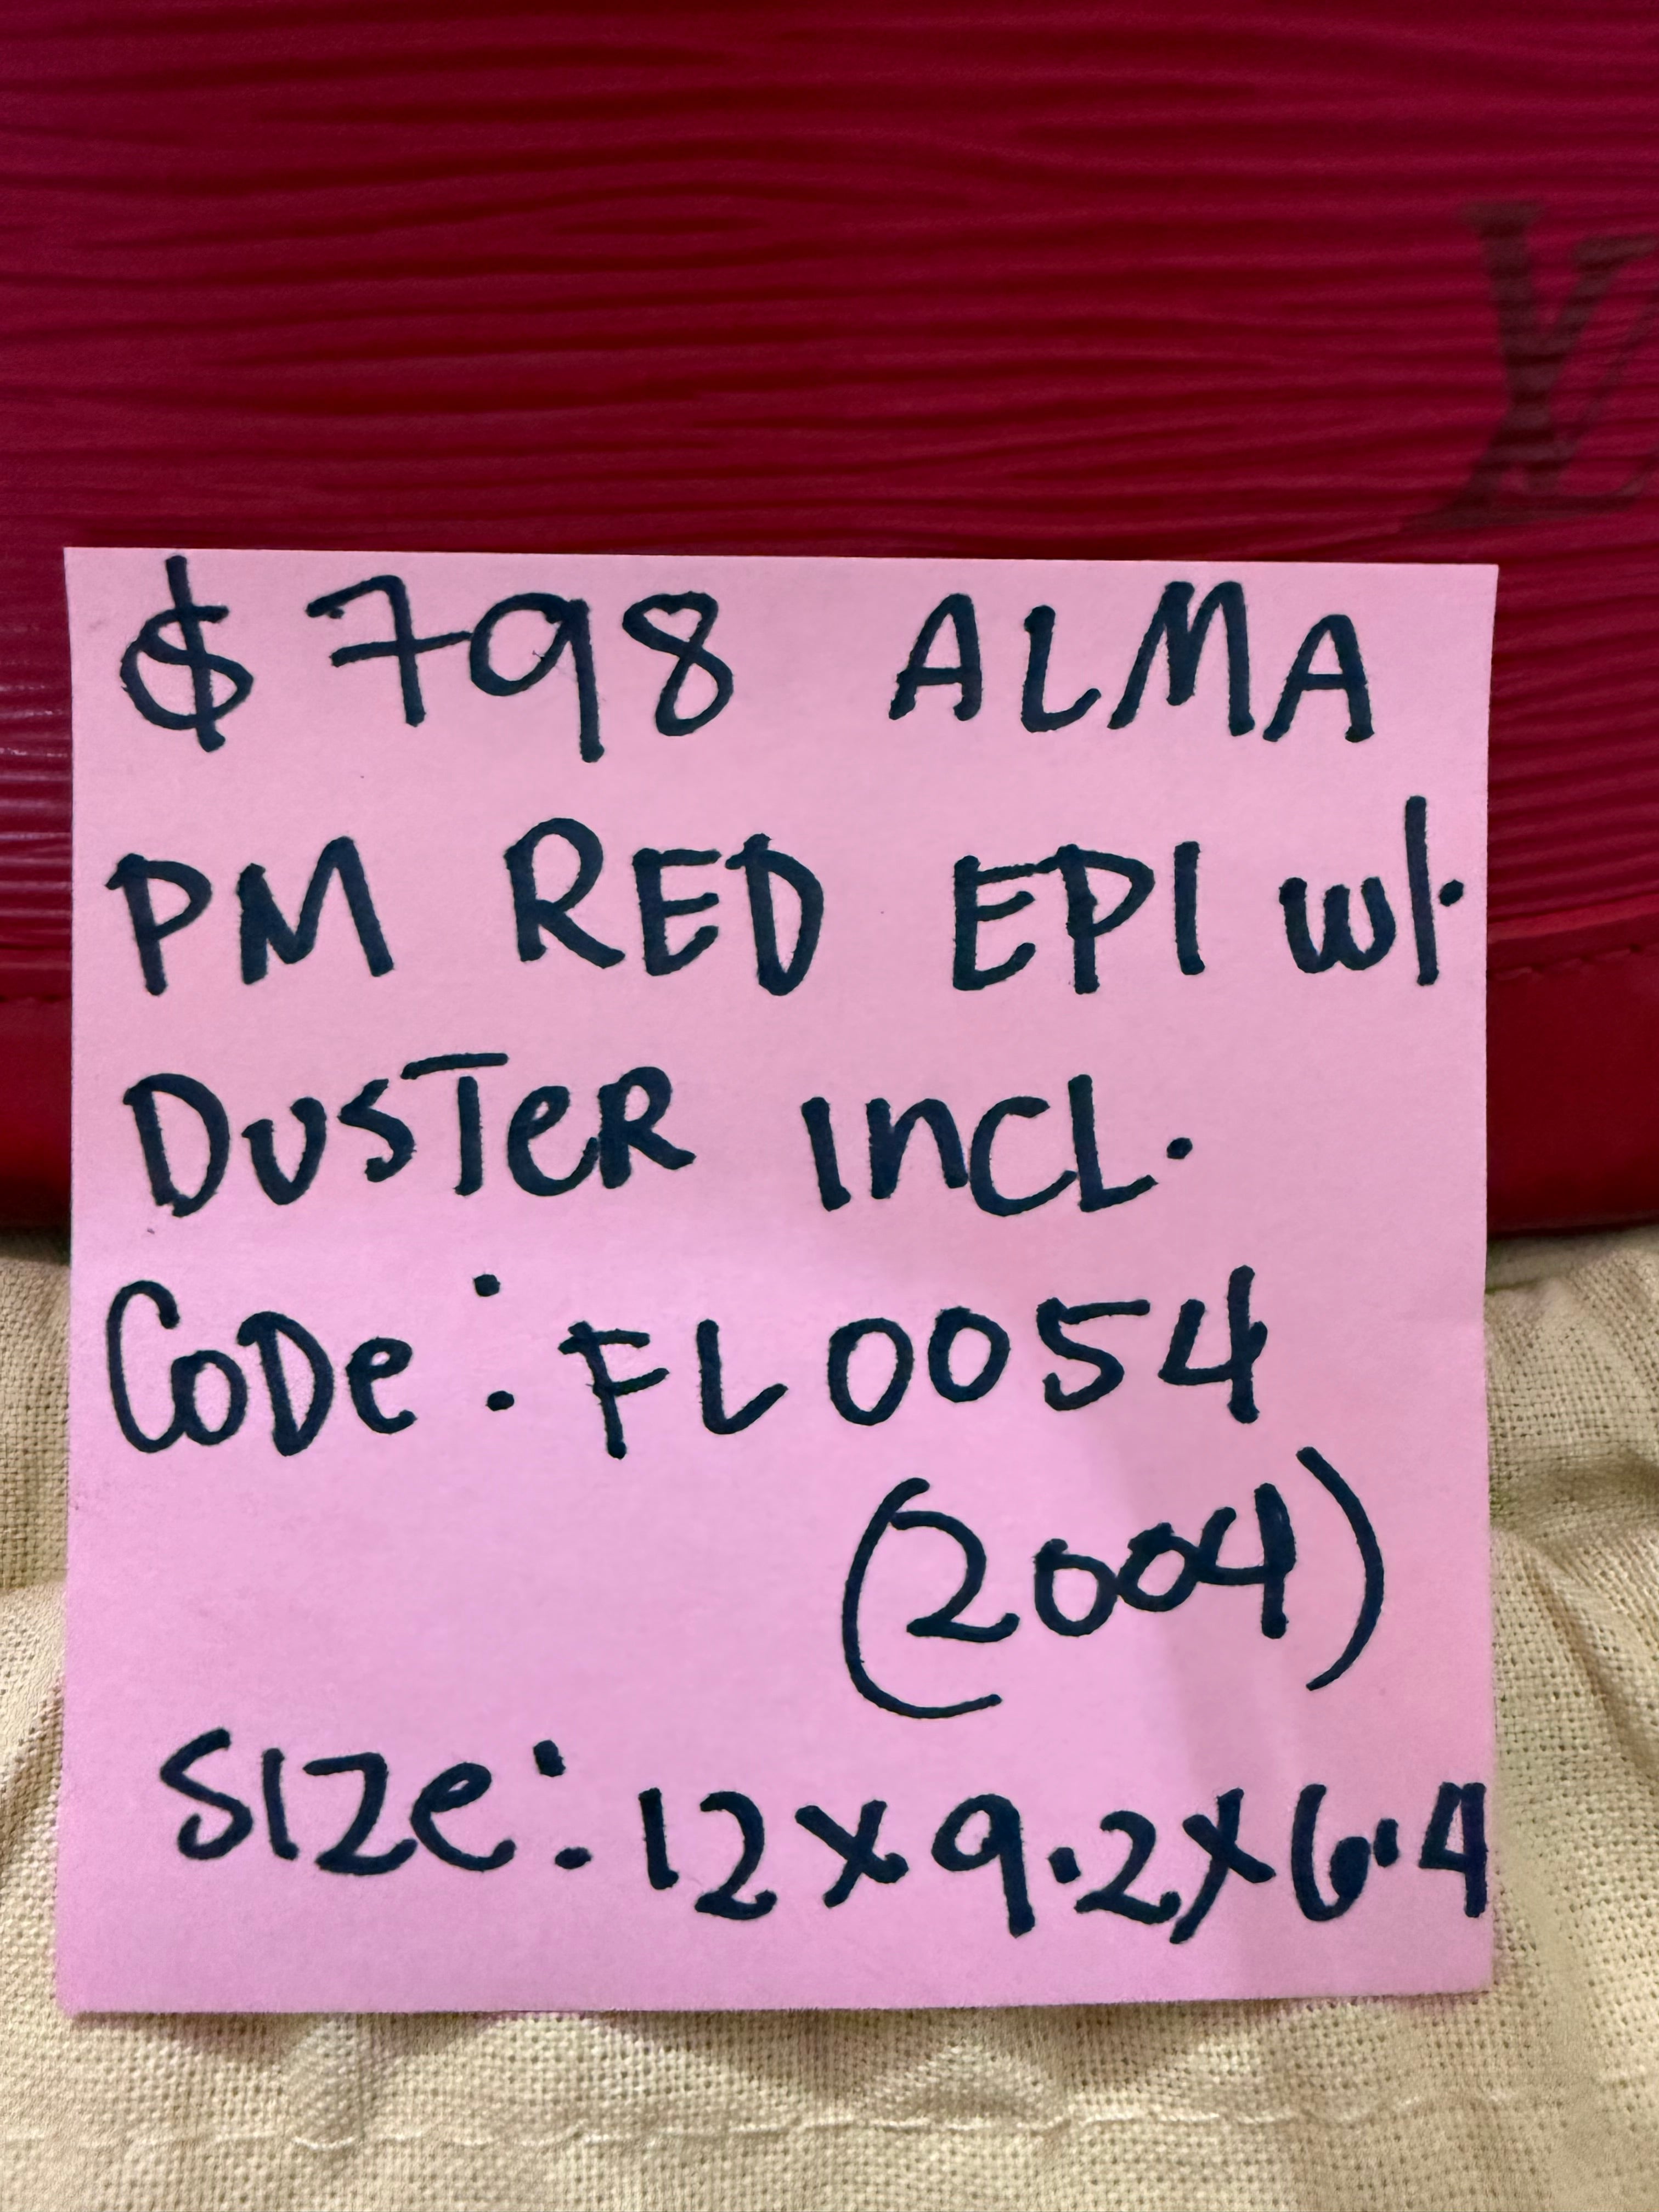 LV
$798 ALMA
PM RED EPI w/.
DUSTeR InCL.
CoDe: FL0054
(2004)
SIZe: 12x9.2x6.4